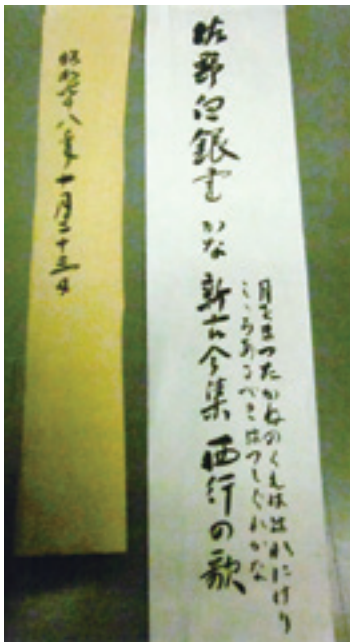 佐野白銀書 かな 新古今集 西行の歌
月をまつたかねのくもははれにけり
こころあるべきはつしぐれかな
八年十月二十三日